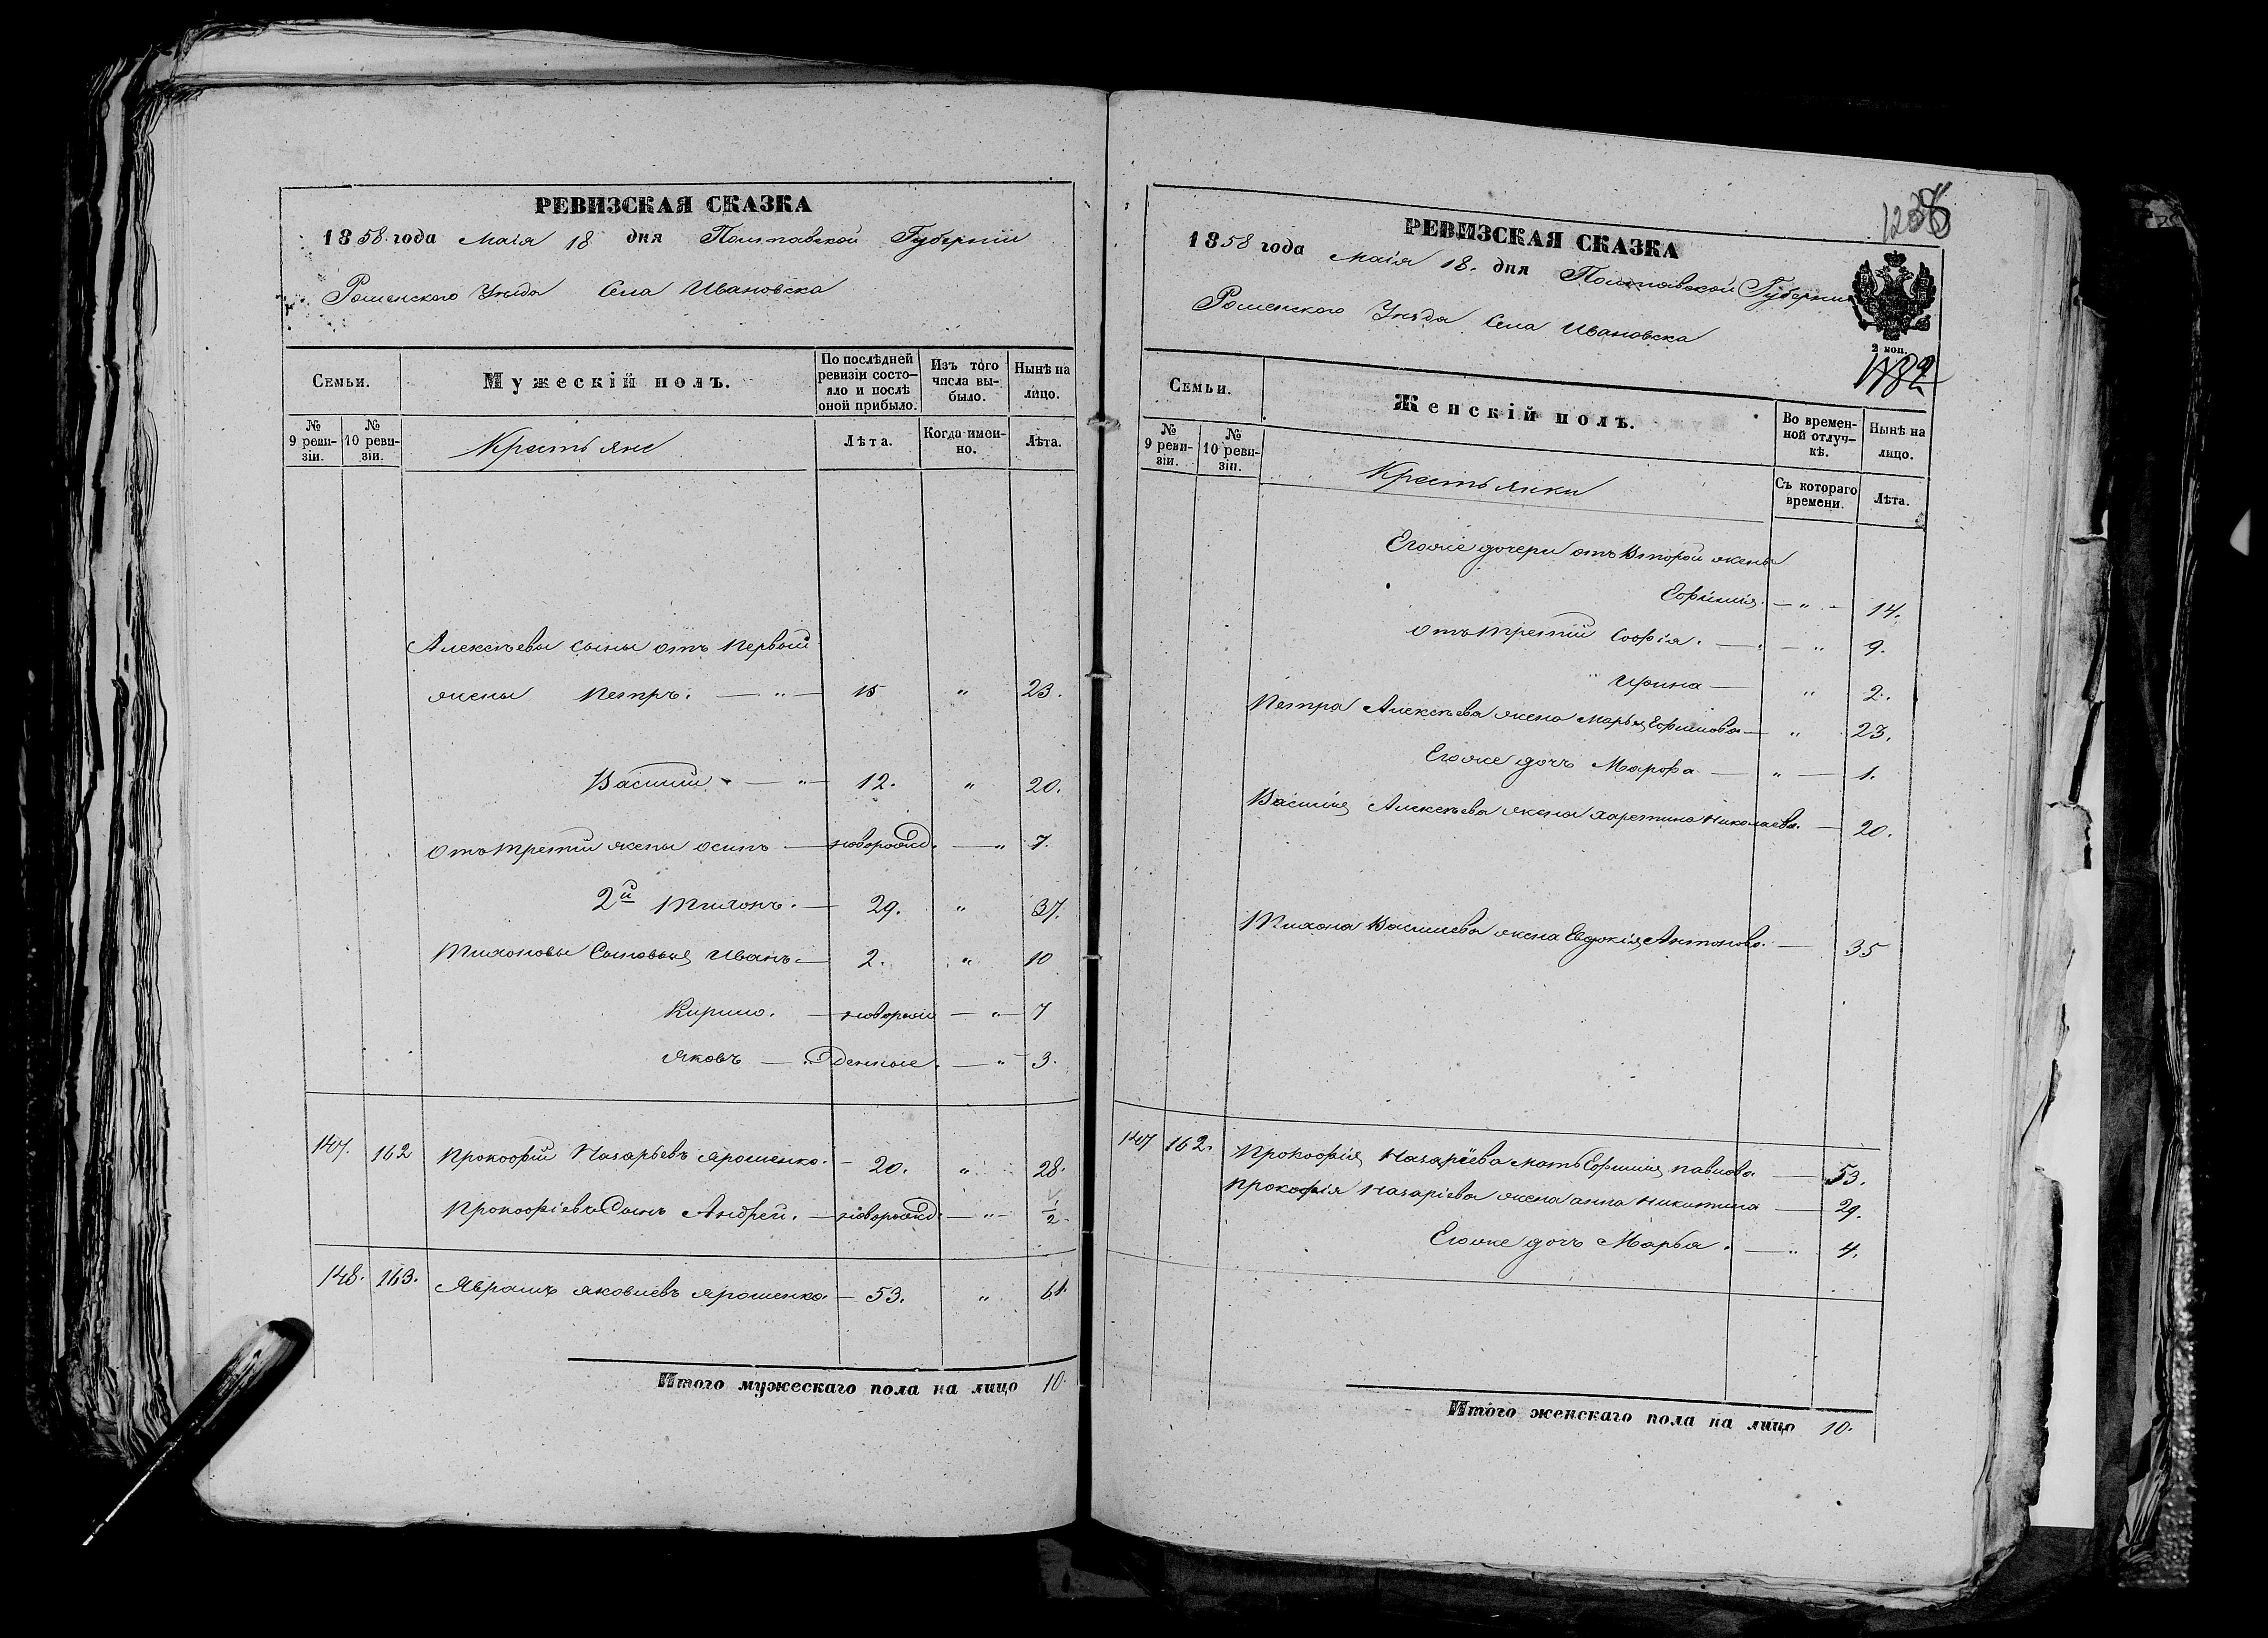 РЕВИЗСКАЯ СКАЗКА
1858 года Маія 18 дня Полтавской Губерніи
Роменского Уѣзда Села Ивановска
Семьи.
Мужескій полъ.
По послѣдней ревизіи состо-
яло и послѣ
оной прибыло.
Изъ того
числа вы-
было.
Нынѣ на
лицо.
№
9 реви-
зіи.
№
10 реви-
зіи.
Крестьяне
Лѣта.
Когда имен-
но.
Лѣта.
Алексѣевы сыны отъ первой
жены Петръ. — " — 15 " 23.
Василий — " — 12. " 20.
Отъ третій жены Осипъ — новорожд. — " 7.
2й Тихонъ. — 29. " 37.
Тихоновы Сыновья Иванъ. — 2. " 10
Кирило. — новорож — " — 7
Яковъ — денные. — " — 3.
147. 162 Прокофій Назарьевъ Ярошенко. — 20. " 28.
Прокофіева Сынъ Андрей. — новорожд. — " — 1/2
148. 163. Яврамъ Яковлевъ Ярошенко. — 53. " 61.
Итого мужескаго пола на лицо 10.
РЕВИЗСКАЯ СКАЗКА
1858 года Маія 18. дня Полтавской Губерніи
Роменского Уѣзда Села Ивановска
2 коп.
Семьи.
Женскій полъ.
Во времен-
ной отлуч-
кѣ.
Нынѣ на
лицо.
№
9 реви-
зіи.
№
10 реви-
зіи.
Крестьянки
Съ котораго
времени.
Лѣта.
Егоже дочери отъ Второй жены
Ефимія. — " — 14.
Отъ третій Софія. — " 9.
Ирина — " 2.
Петра Алексѣева жена Марья Ефимова — " 23.
Егоже дочъ Марфа — " — 1.
Василія Алексѣева жена Харетина Николаева. — 20.
Тихона Василиева жена Евдокія Антонова. — 35
147 162. Прокофія Назаріева мать Ефимия Павлова — 53.
Прокофія Назаріева жена Анна Никитина — 29.
Егоже дочъ Марья. — " 4.
Итого женскаго пола на лицо 10.